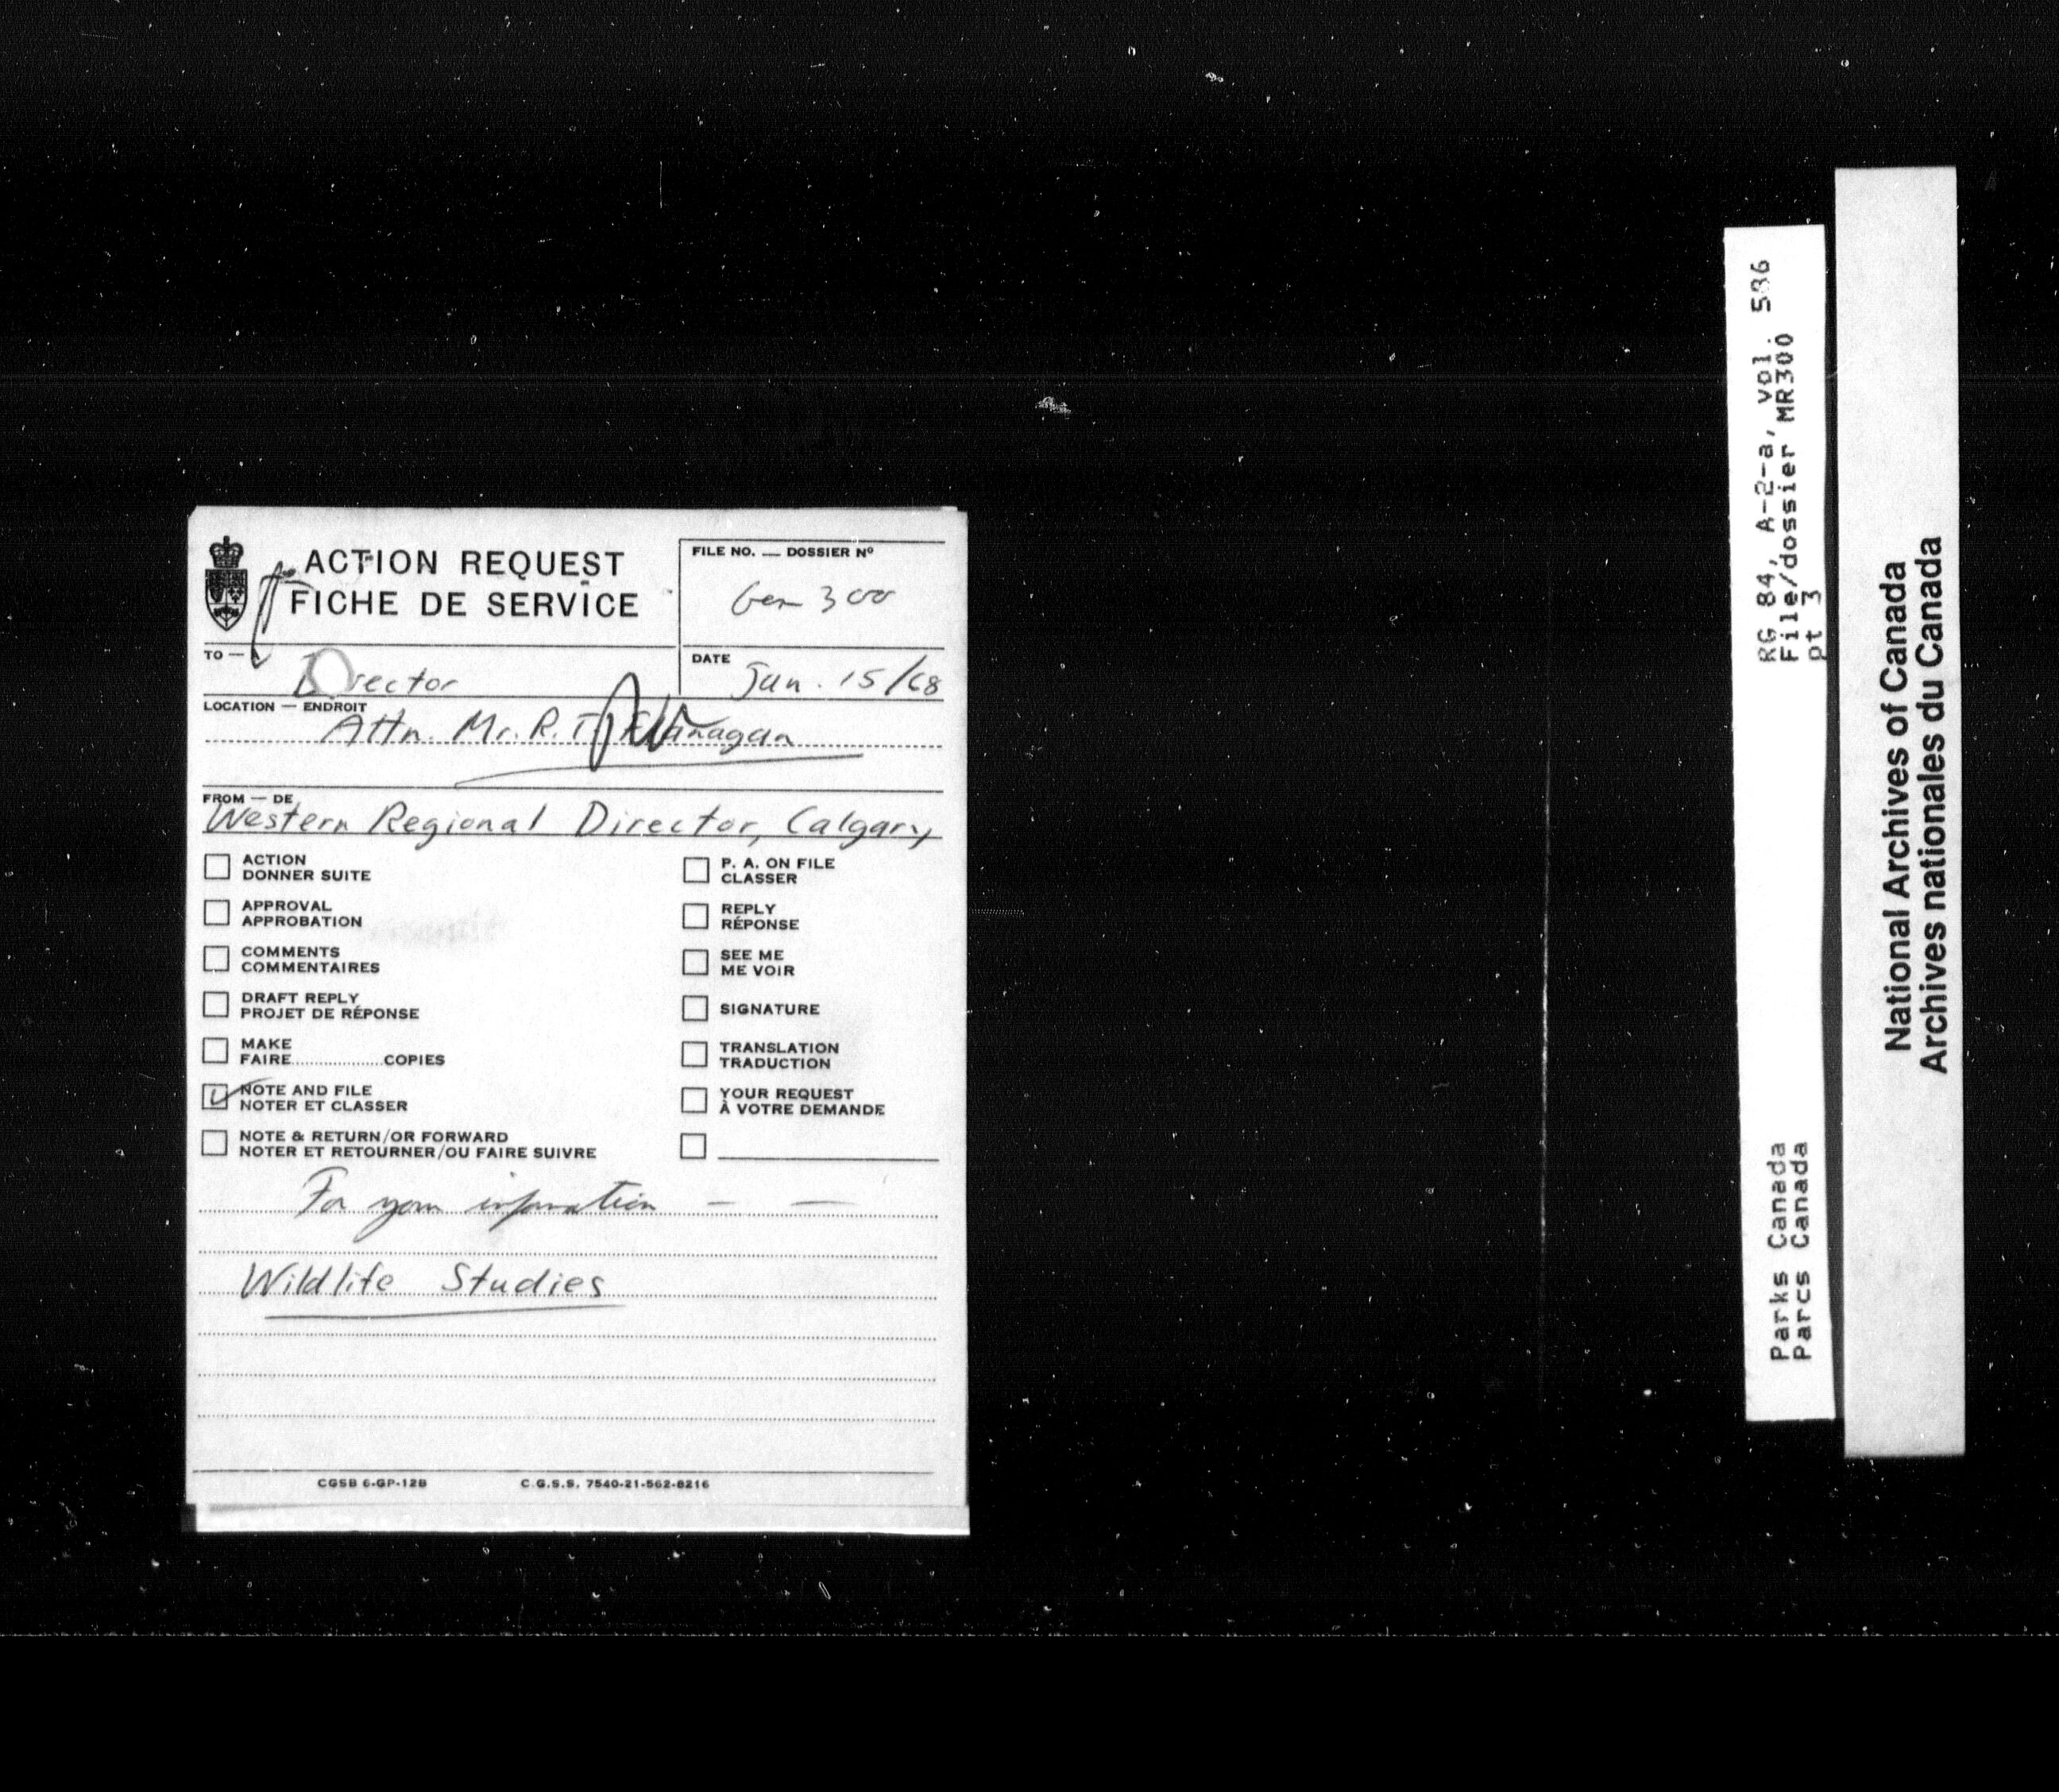 ACTION REQUEST
FICHE DE SERVICE
FILE NO. — DOSSIER Nº
Gen 300
TO —
Director
DATE
Jan. 15/68
LOCATION — ENDROIT
Attn. Mr. R. T. Flanagan
FROM — DE
Western Regional Director, Calgary
ACTION
DONNER SUITE
APPROVAL
APPROBATION
COMMENTS
COMMENTAIRES
DRAFT REPLY
PROJET DE RÉPONSE
MAKE
FAIRE..............COPIES
NOTE AND FILE
NOTER ET CLASSER
NOTE & RETURN/OR FORWARD
NOTER ET RETOURNER/OU FAIRE SUIVRE
P. A. ON FILE
CLASSER
REPLY
RÉPONSE
SEE ME
ME VOIR
SIGNATURE
TRANSLATION
TRADUCTION
YOUR REQUEST
À VOTRE DEMANDE
For your information — —
Wildlife Studies
CGSB 6-GP-12B C.G.S.S. 7540-21-562-8216
RG 84, A-2-a, vol. 586
File/dossier MR300
pt 3
Parks Canada
Parcs Canada
National Archives of Canada
Archives nationales du Canada